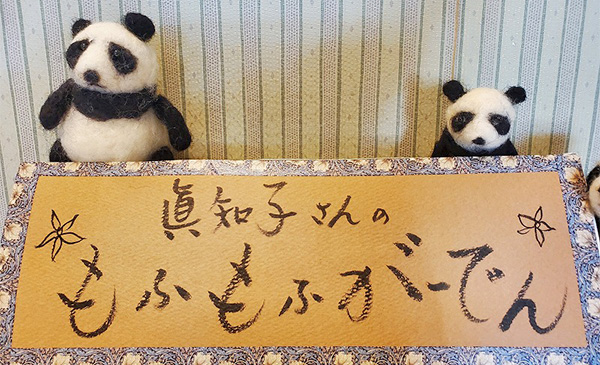 眞知子さんの
もふもふがーでん